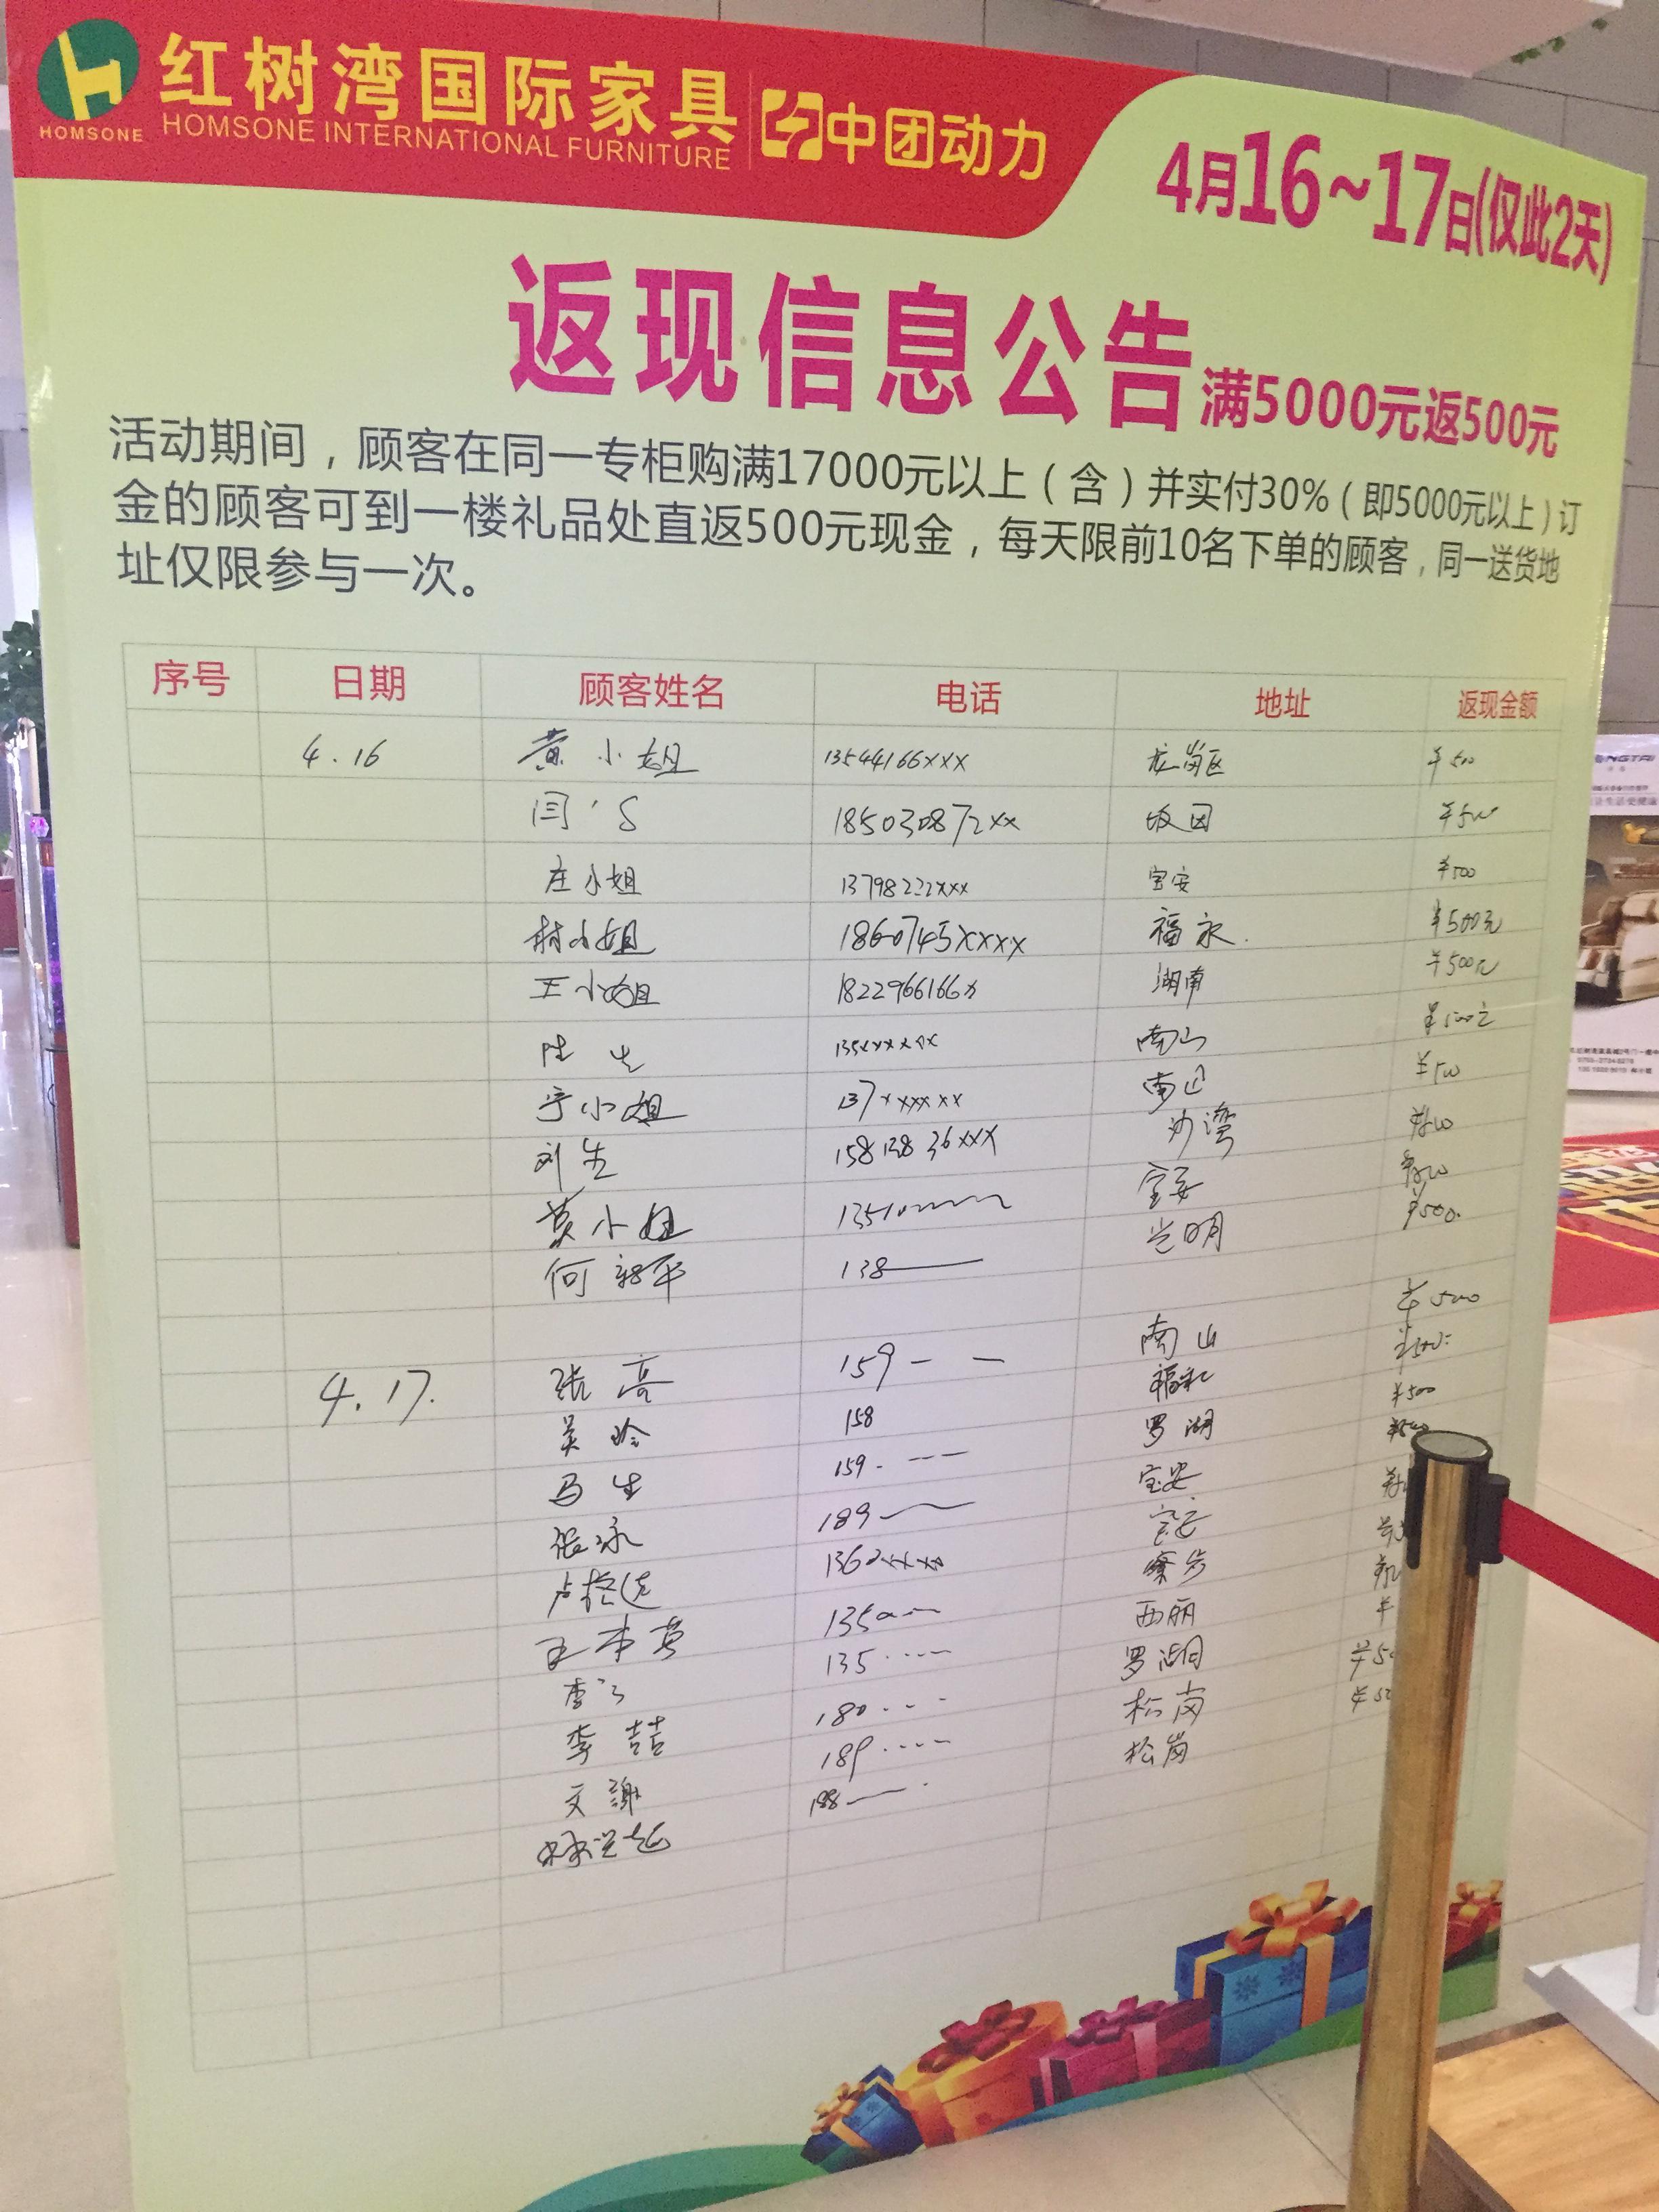 红树湾国际家具 中团动力
HOMSONE HOMSONE INTERNATIONAL FURNITURE
4月16~17日(仅此2天)
返现信息公告 满5000元返500元
活动期间，顾客在同一专柜购满17000元以上（含）并实付30%（即5000元以上）订
金的顾客可到一楼礼品处直返500元现金，每天限前10名下单的顾客，同一送货地
址仅限参与一次。
序号 日期 顾客姓名 电话 地址 返现金额
4.16 黄小姐 13544166xxx 龙岗区 ¥500
闫'S 185030872xx 坂田 ¥500
庄小姐 13798222xxx 宝安 ¥500
林小姐 1860745xxxx 福永. ¥500元
王小姐 1822966166x 湖南 ¥500元
陆生 南山 ¥500元
宁小姐 137xxxxxx ¥500
刘生 15813836xxx 沙湾 ¥500
黄小姐 13510 宝安 ¥500
138 光明 ¥500.
4.17. 张亮 159 — — 南山 ¥500
吴玲 158 ¥500
马生 159. --- 罗湖 ¥500
张泳 189 宝安
宝安
王本英 135 寮步
李 135 ···-- 西丽
李喆 180 罗湖
文謝 189 ···-- 松岗
188 松岗